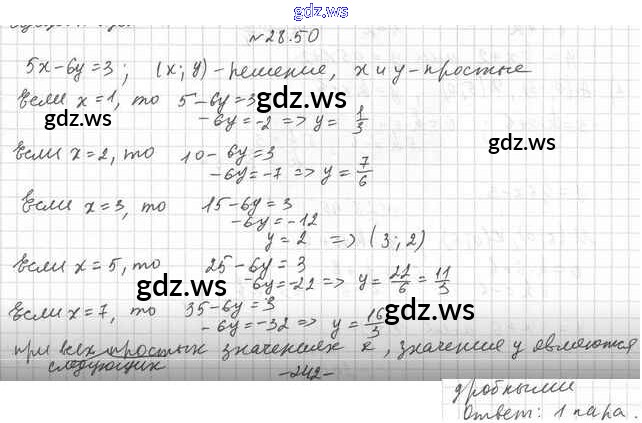 gdz.ws
№28.50
5x-6y=3; (x; y)-решение, x и y-простые
Если x=1, то 5-6y=3 gdz.ws
gdz.ws -6y=-2 => y= 1/3 gdz.ws
Если x=2, то 10-6y=3
-6y=-7 => y= 7/6
Если x=3, то 15-6y=3
-6y=-12
y=2 => (3; 2)
Если x=5, то 25-6y=3
gdz.ws -6y=-22 => y= 22/6 = 11/3
Если x=7, то 35-6y=3 gdz.ws
-6y=-32 => y= 16/3
при всех простых значениях x, значение y являются
следующих
-242-
дробными
Ответ: 1 пара.